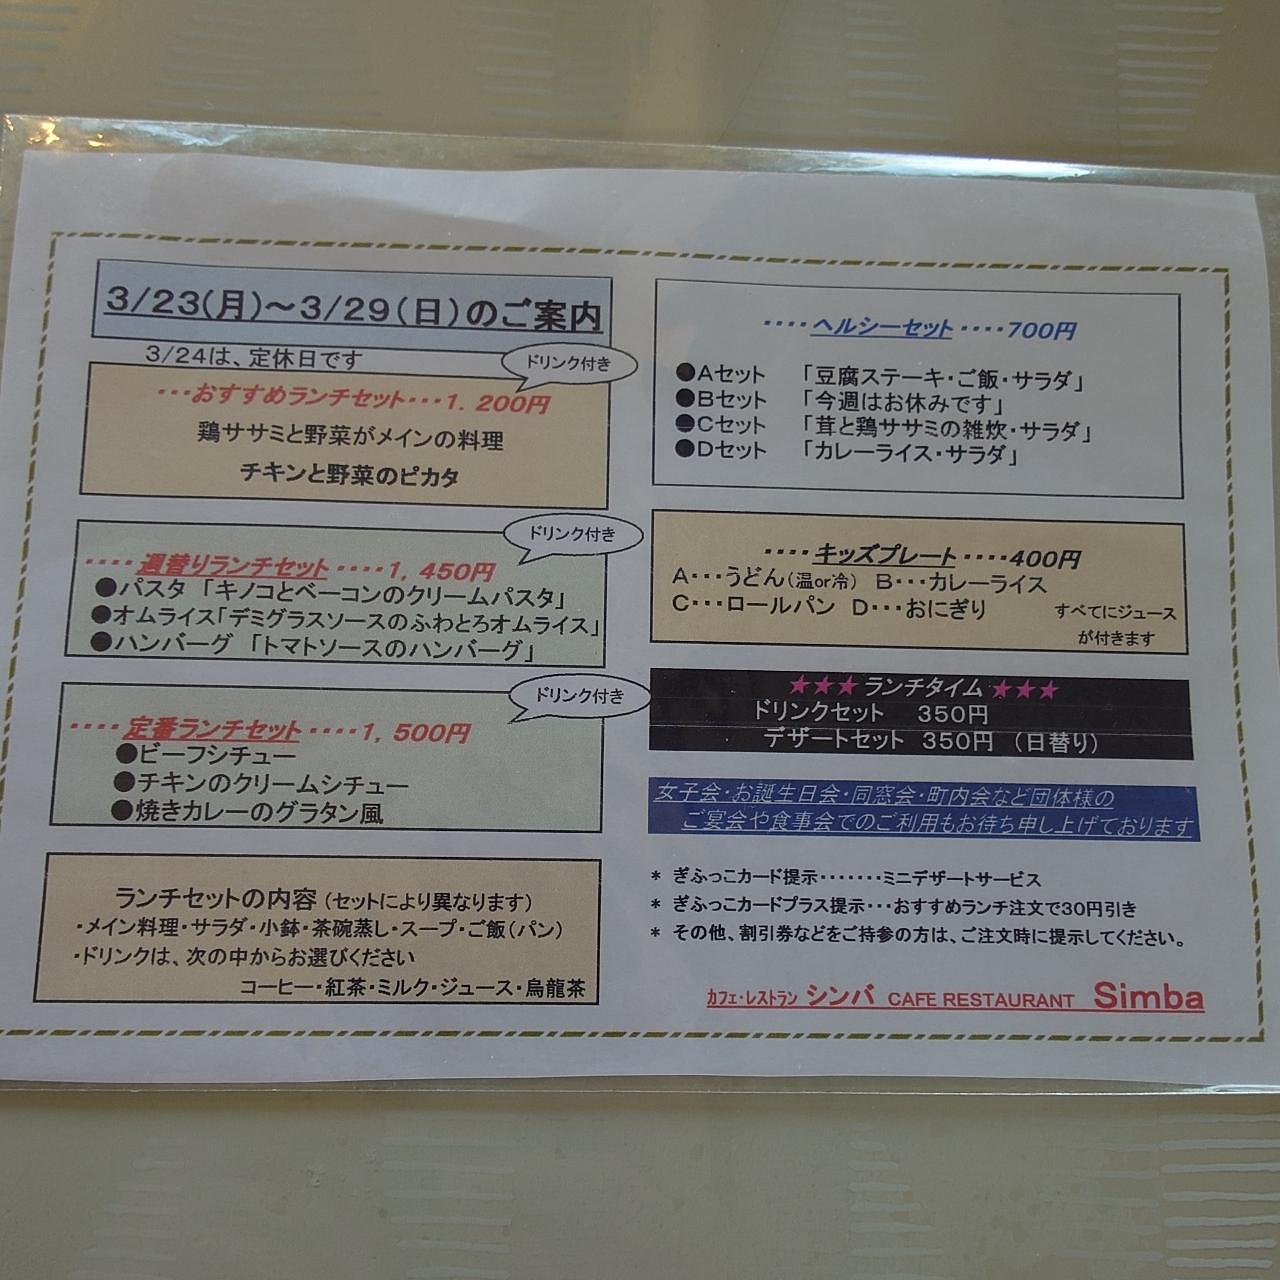 3/23(月)～3/29(日)のご案内
3/24は、定休日です
ドリンク付き
・・・おすすめランチセット・・・1.200円
鶏ササミと野菜がメインの料理
チキンと野菜のピカタ
ドリンク付き
・・・・週替りランチセット・・・・1,450円
●パスタ「キノコとベーコンのクリームパスタ」
●オムライス「デミグラスソースのふわとろオムライス」
●ハンバーグ「トマトソースのハンバーグ」
ドリンク付き
・・・・定番ランチセット・・・・1,500円
●ビーフシチュー
●チキンのクリームシチュー
●焼きカレーのグラタン風
ランチセットの内容(セットにより異なります)
・メイン料理・サラダ・小鉢・茶碗蒸し・スープ・ご飯(パン)
・ドリンクは、次の中からお選びください
コーヒー・紅茶・ミルク・ジュース・烏龍茶
・・・・ヘルシーセット・・・・700円
●Aセット 「豆腐ステーキ・ご飯・サラダ」
●Bセット 「今週はお休みです」
●Cセット 「茸と鶏ササミの雑炊・サラダ」
●Dセット 「カレーライス・サラダ」
・・・・キッズプレート・・・・400円
A・・・うどん(温or冷) B・・・カレーライス
C・・・ロールパン D・・・おにぎり すべてにジュース
が付きます
★★★ランチタイム★★★
ドリンクセット 350円
デザートセット 350円 (日替り)
女子会・お誕生日会・同窓会・町内会など団体様の
ご宴会や食事会でのご利用もお待ち申し上げております
* ぎふっこカード提示・・・・・・・ミニデザートサービス
* ぎふっこカードプラス提示・・・おすすめランチ注文で30円引き
* その他、割引券などをご持参の方は、ご注文時に提示してください。
カフェ・レストラン シンバ CAFE RESTAURANT Simba